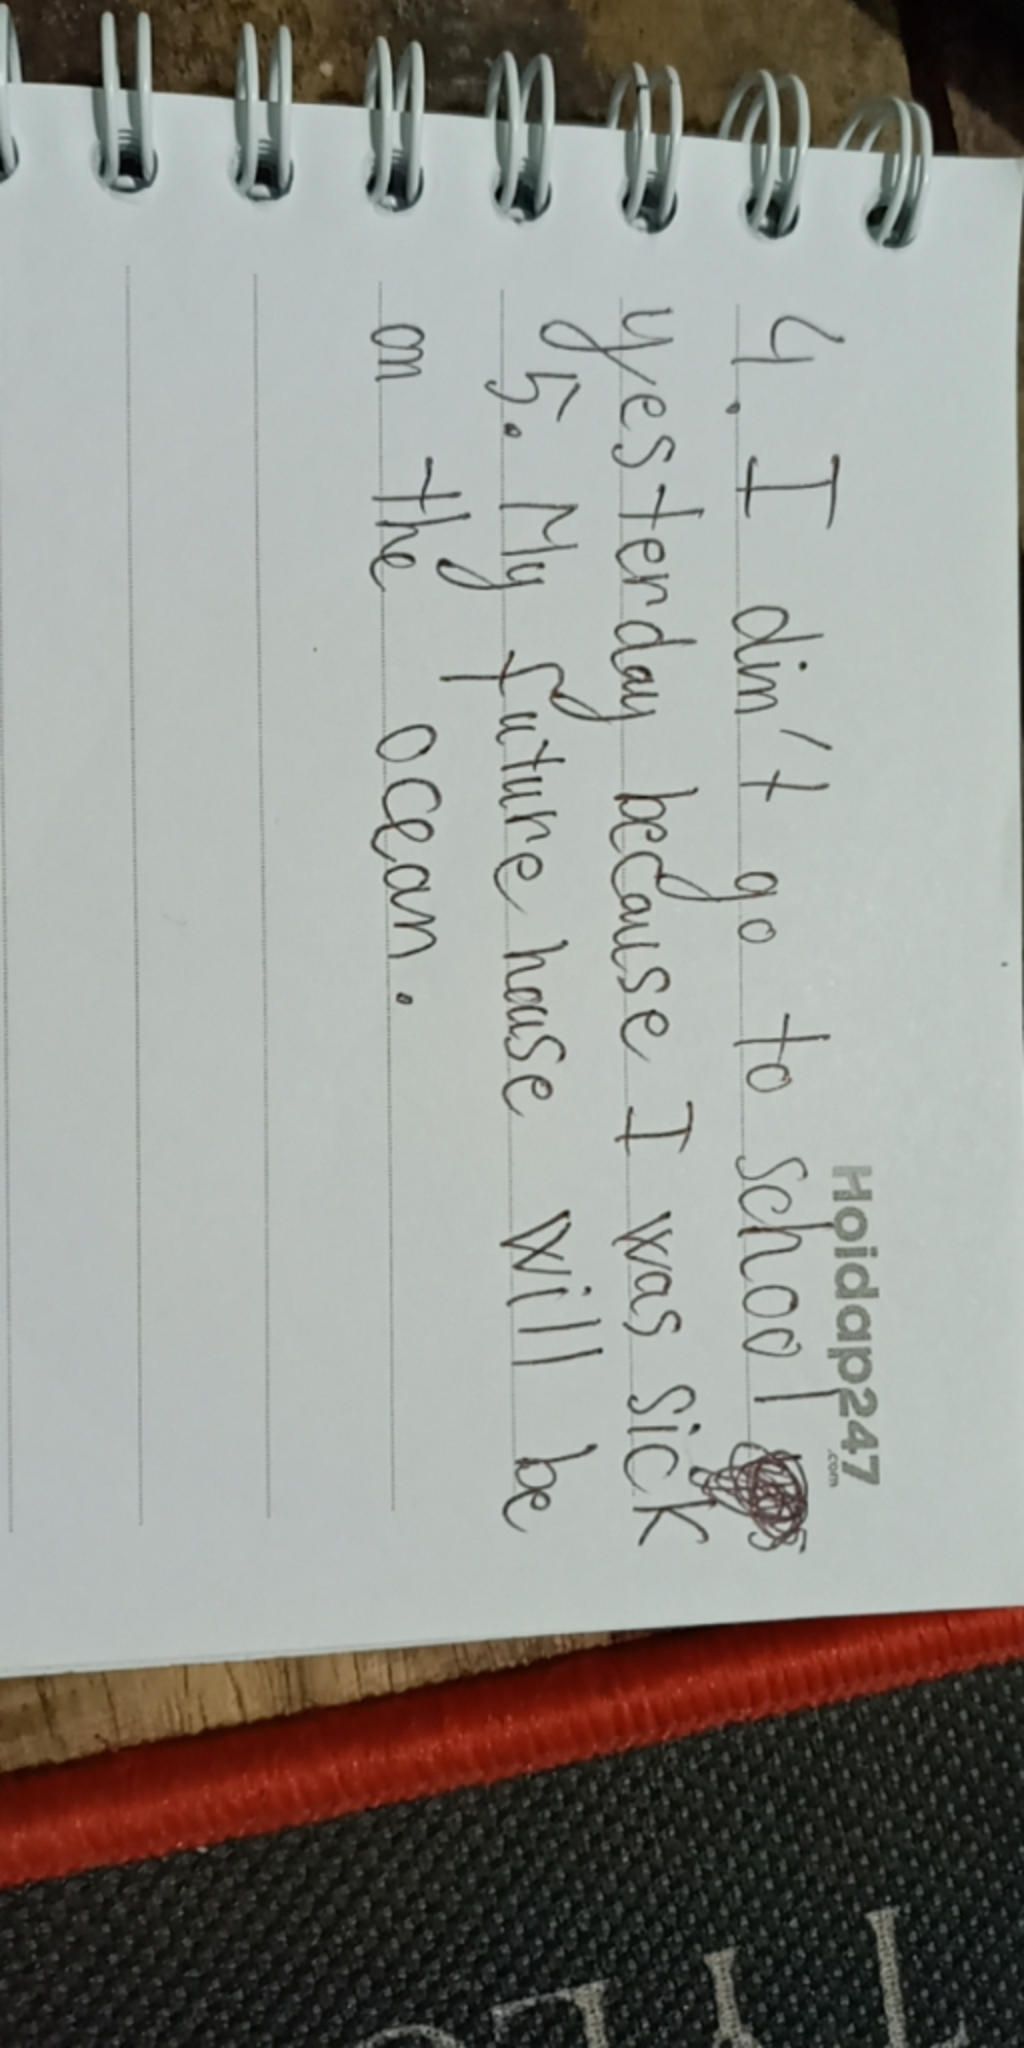 Hoidap247
.com
4. I din't go to school
yesterday because I was sick
5. My future house will be
on the ocean.